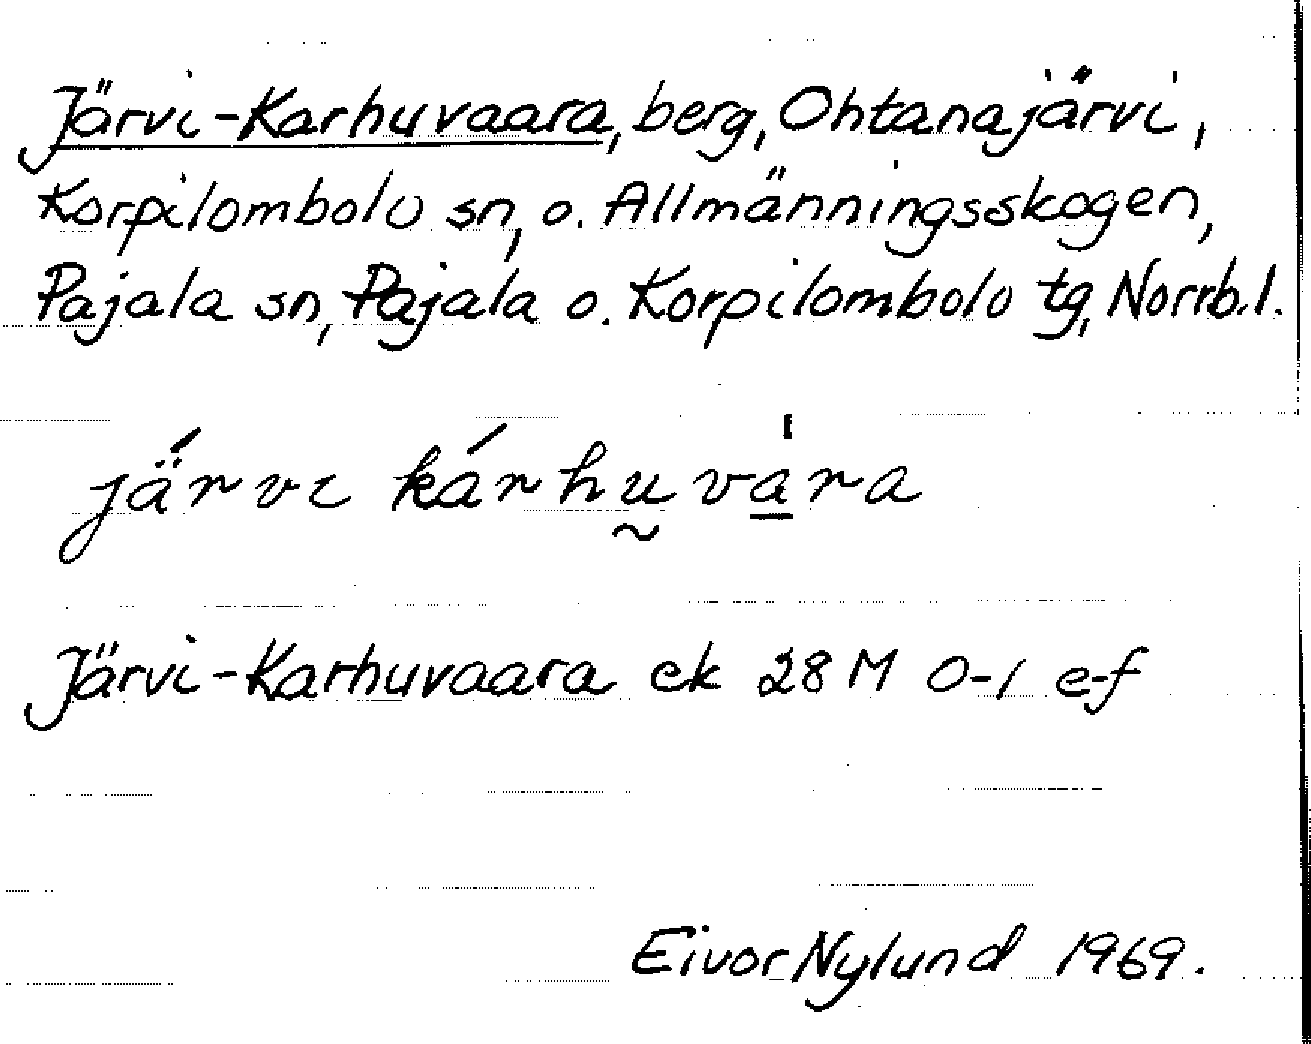 Järvi-Karhuvaara, berg, Ohtanajärvi,
Korpilombolo sn, o. Allmänningsskogen,
Pajala sn, Pajala o. Korpilombolo tg, Norrb.l.
jä́rvi kárhṵva̱̍ra
Järvi-Karhuvaara ek 28 M 0-1 e-f
Eivor Nylund 1969.